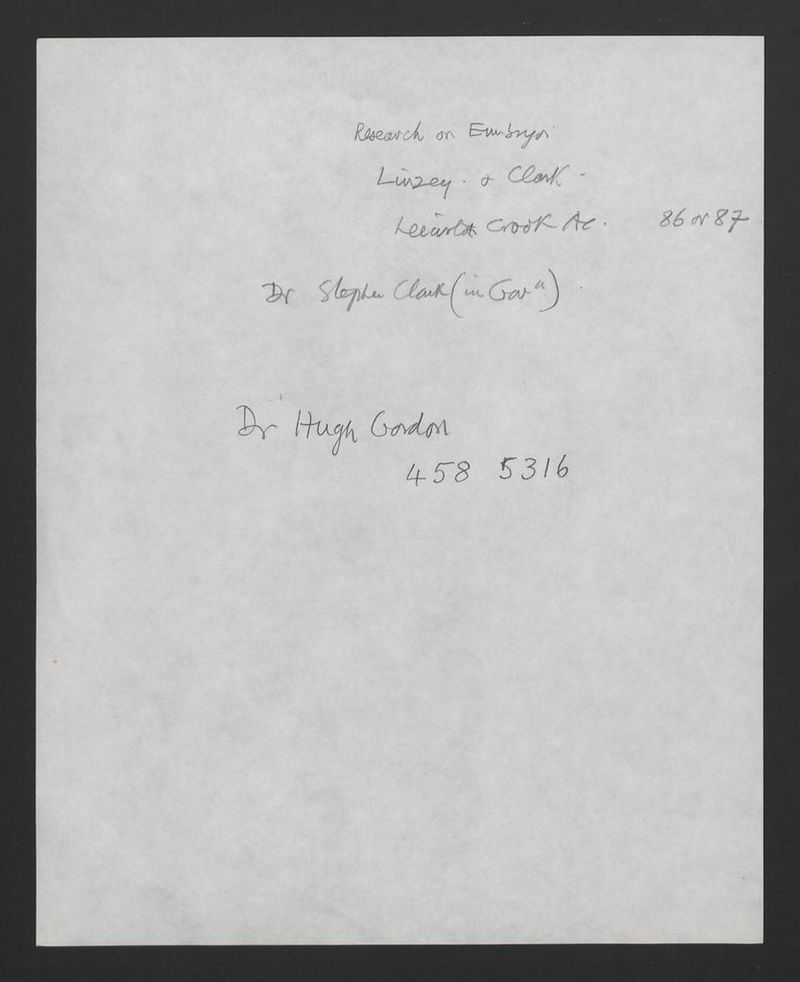 Research on Embryos
Linzey. & Clark -
Crook Ac. 86 or 87
Dr Stephen Clark (in Gov<sup>n</sup>.)
Dr Hugh Gordon
458 5316